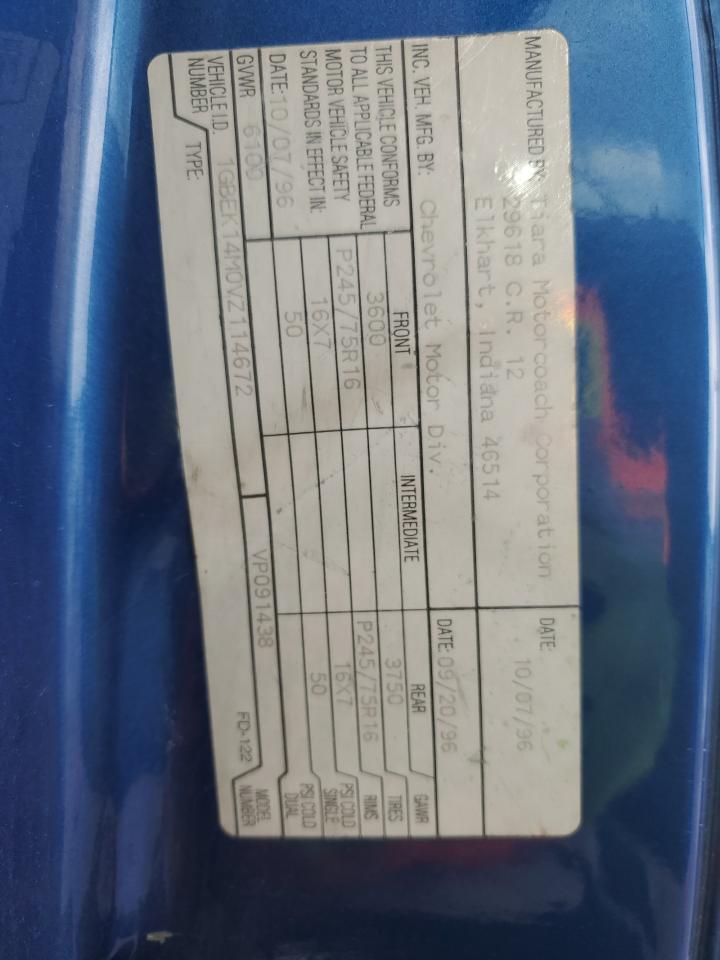 MANUFACTURED BY: Tiara Motorcoach Corporation DATE: 10/07/96
29618 C.R. 12
Elkhart, Indiana 46514
INC. VEH. MFG. BY: Chevrolet Motor Div. DATE: 09/20/96
THIS VEHICLE CONFORMS FRONT INTERMEDIATE REAR GAWR
TO ALL APPLICABLE FEDERAL 3600 3750 TIRES
MOTOR VEHICLE SAFETY P245/75R16 P245/75R16 RIMS
STANDARDS IN EFFECT IN: 16X7 16X7 PSI COLD SINGLE
DATE: 10/07/96 50 50 PSI COLD DUAL
GVWR 6100
VEHICLE I.D. NUMBER 1GBEK14M0VZ114672 VP091438 MODEL NUMBER
TYPE: FD-122